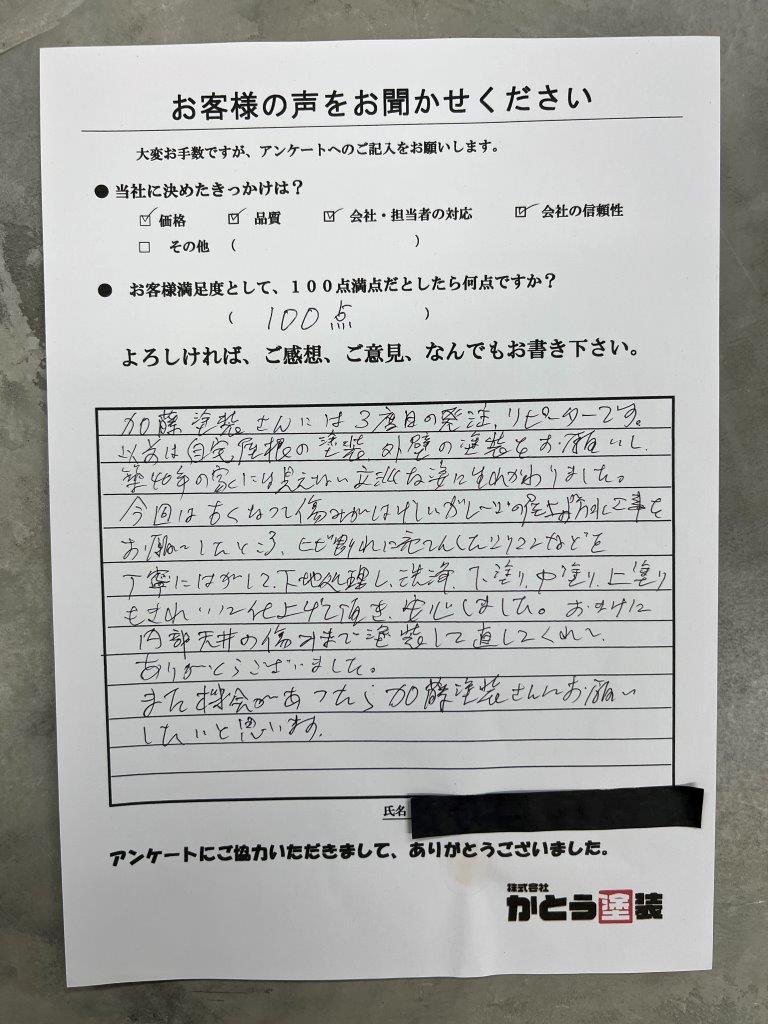 お客様の声をお聞かせください
大変お手数ですが、アンケートへのご記入をお願いします。
● 当社に決めたきっかけは？
☑ 価格 ☑ 品質 ☑ 会社・担当者の対応 ☑ 会社の信頼性
□ その他 （ ）
● お客様満足度として、１００点満点だとしたら何点ですか？
（ 100点 ）
よろしければ、ご感想、ご意見、なんでもお書き下さい。
加藤塗装さんには3度目の発注、リピーターです。
以前は自宅屋根の塗装、外壁の塗装をお願いし、
築40年の家には見えない立派な姿に生れかわりました。
今回は古くなって傷みがはげしいガレージの屋上防水工事を
お願いしたところ、ヒビ割れに充てんした
丁寧にはがして、下地処理し、洗浄、下塗り、中塗り、上塗り
もきれいに仕上げて頂き、安心しました。おまけに
内部天井の傷みまで塗装して直してくれて、
ありがとうございました。
また機会があったら加藤塗装さんにお願い
したいと思います。
氏名
アンケートにご協力いただきまして、ありがとうございました。
株式会社
かとう塗装